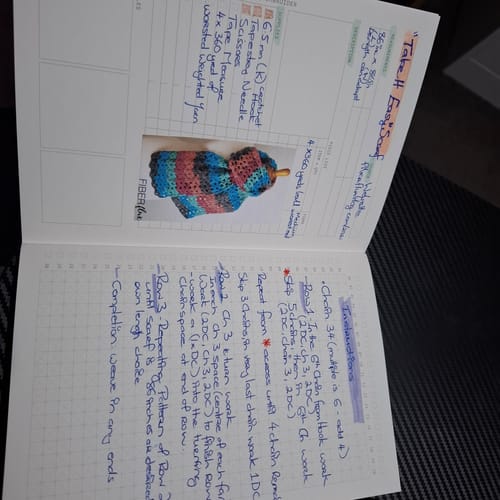 "Take It Easy" Scarf
MEASUREMENTS
85in x 8½in
DESCRIPTION
SUPPLIES
6.5mm (K) crochet Hook
Tapestry Needle
Scissors
Tape Measure
4 x 360 yard of
worsted weighted yarn
4x360 yards ball medium
worsted
FIBERflux
Instructions
• Chain 34 (multiple is 6 - add 4)
- Row 1 - In the 6th chain from Hook work
(2DC, ch 3, 2DC),
* Skip 5 chains, then in 6th Ch work
(2DC, chain 3, 2DC)
Repeat from * across until 4 chain remain
Skip 3 chains, in very last chain work 1DC
- Row 2 Ch 3 & turn work
In each ch 3 space (centre of each fan)
Work (2DC, ch 3, 2DC) to finish row
work a (1 DC) into the turning
chain space at end of row
- Row 3 Repeating Pattern of Row 2
until scarf is 85 inches or desired
own length choice
- Completion weave in any ends